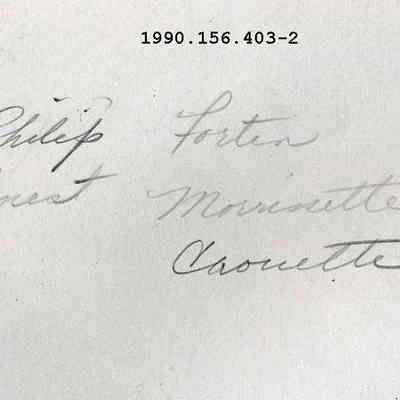 1990.156.403-2
Philip Fortin
nest Morrinette
Caouette